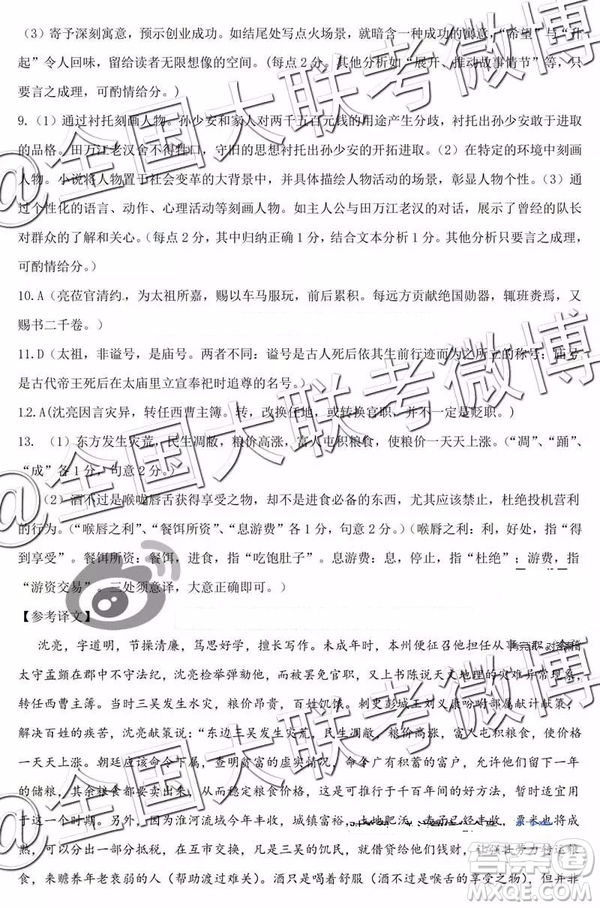 （3）寄予深刻寓意，预示创业成功。如结尾处写点火场景，就暗含一种成功的寓意，“希望”与“升
起”令人回味，留给读者无限想像的空间。（每点 2 分。其他分析如“展开、推动故事情节”等，只
要言之成理，可酌情给分。）
9.（1）通过衬托刻画人物。孙少安和家人对两千五百元钱的用途产生分歧，衬托出孙少安敢于进取
的品格。田万江老汉舍不得牲口，守旧的思想衬托出孙少安的开拓进取。（2）在特定的环境中刻画
人物。小说将人物置于社会变革的大背景中，并通过点火的场景，彰显孙少安的人物形象。（3）通
过个性化的语言、动作、心理活动等刻画人物。如主人公与田万江老汉的对话，展示了曾经的队长
对群众的了解和关心。（每点 2 分，其中归纳正确 1 分，结合文本分析 1 分。其他分析只要言之成理，
可酌情给分。）
10.A（亮莅官清约，为太祖所嘉，赐以车马服玩，前后累积。每远方贡献绝国勋器，辄班赉焉，又
赐书二千卷。）
11.D（太祖，非谥号，是庙号。两者不同：谥号是古人死后依其生前行迹而为之所立的称号；庙号
是古代帝王死后在太庙里立宣奉祀时追尊的名号。）
12.A(沈亮因言灾异，转任西曹主簿。转，改换任地，或转换官职。并不一定是贬职。）
13. （1）东方发生灾荒，民生凋敝，粮价高涨，富人屯积粮食，使粮价一天天上涨。（“凋”、“踊”、
“成”各 1 分，句意 2 分。）
（2）酒不过是喉咙唇舌获得享受之物，却不是进食必备的东西，尤其应该禁止，杜绝投机营利
的行为。（“喉唇之利”、“餐饵所资”、“息游费”各 1 分，句意 2 分。）（喉唇之利：利，指“得
到享受”。餐饵所资：餐饵，进食，指“吃饱肚子”。息游费：息，停止，指“杜绝”；游费，指
“游资交易”。三处须意译，大意正确即可。）
【参考译文】
沈亮，字道明，节操清廉，笃思好学，擅长写作。未成年时，本州便征召他担任从事一职。会稽
太守孟顗在郡中不守法纪，沈亮检举弹劾他，而最终被罢免官职，又上书陈说天文地理的灾难异常现象，
转任西曹主簿。当时三吴发生水灾，粮价昂贵，百姓饥饿。刺史彭城王刘义康吩咐部属献计献策，
解决百姓的疾苦，沈亮献策说：“东边三吴发生灾荒，民生凋敝粮价高涨，富人屯积粮食，使价格
一天天上涨。朝廷应该命令下属，查明财富的虚实，命令广有积蓄的富户，允许他们留下一年
的储粮，其余粮食都要卖出来，给它规定适当的价格，这就是所说的永久适用的好方法，暂时适用
于今天。又因为淮河流域今年丰收，城镇富裕，土地肥沃，麦子已经丰收，黍子也将成
熟，可以分出来一部分抵税，在互市交易，凡是三吴的饥民，就借贷给他们钱财，让强壮劳力输送粮
食，来赡养年老衰弱的人（帮助渡过难关）。酒只是喝着舒服（酒不过是喉舌的享受之物），但并非